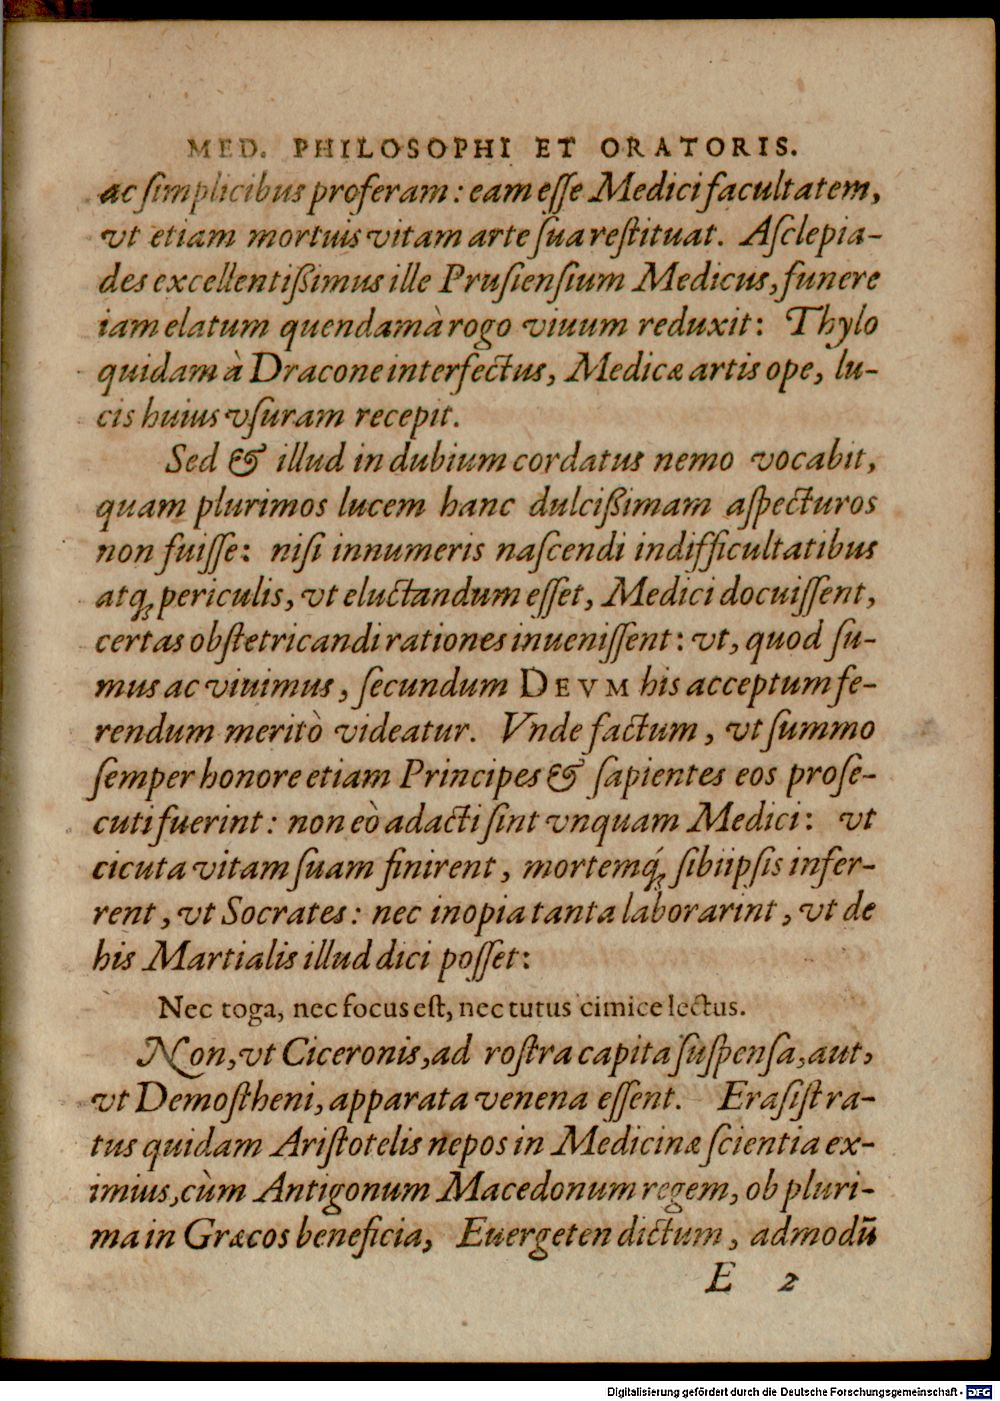 MED. PHILOSOPHI ET ORATORIS.
ac ſimplicibus proferam: eam eſſe Medici facultatem,
vt etiam mortuis vitam arte ſua reſtituat. Aſclepia-
des excellentißimus ille Pruſienſium Medicus, funere
iam elatum quendam à rogo viuum reduxit: Thylo
quidam à Dracone interfectus, Medicæ artis ope, lu-
cis huius vſuram recepit.
Sed & illud in dubium cordatus nemo vocabit,
quam plurimos lucem hanc dulcißimam aſpecturos
non fuiſſe: niſi innumeris naſcendi in difficultatibus
atq; periculis, vt eluctandum eſſet, Medici docuiſſent,
certas obſtetricandi rationes inueniſſent: vt, quod ſu-
mus ac viuimus, ſecundum DEVM his acceptum fe-
rendum meritò videatur. Vnde factum, vt ſummo
ſemper honore etiam Principes & ſapientes eos proſe-
cuti fuerint: non eò adacti ſint vnquam Medici: vt
cicuta vitam ſuam finirent, mortemq́; ſibi ipſis infer-
rent, vt Socrates: nec inopia tanta laborarint, vt de
his Martialis illud dici poſſet:
Nec toga, nec focus eſt, nec tutus cimice lectus.
Non, vt Ciceronis, ad roſtra capita ſuſpenſa, aut,
vt Demoſtheni, apparata venena eſſent. Eraſiſtra-
tus quidam Ariſtotelis nepos in Medicinæ ſcientia ex-
imius, cùm Antigonum Macedonum regem, ob pluri-
ma in Græcos beneficia, Euergeten dictum, admodū
E 2
Digitalisierung gefördert durch die Deutsche Forschungsgemeinschaft - DFG